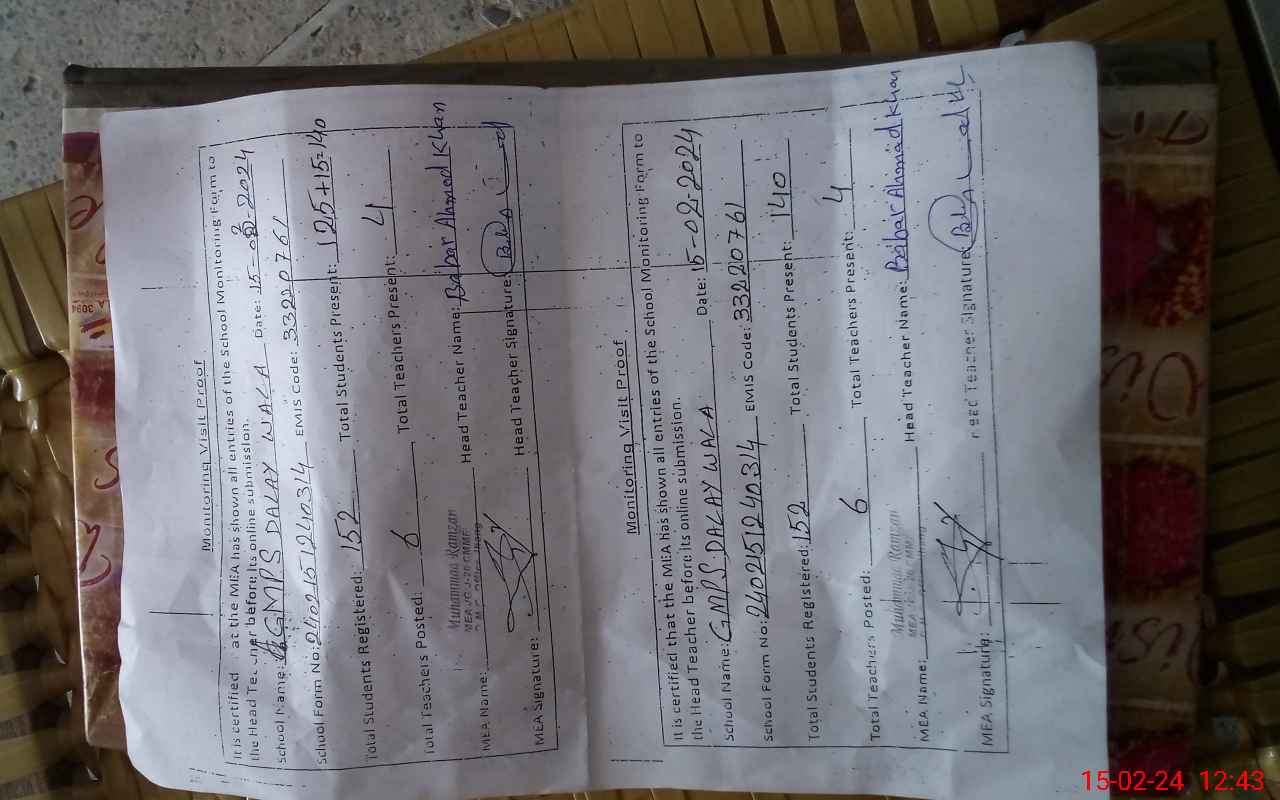 Monitoring Visit Proof
It is certified at the MEA has shown all entries of the School Monitoring Form to
the Head Teacher before its online submission.
School Name: GMPS DALAY WALA Date: 15-02-2024
School Form No: 2402151240314 EMIS Code: 33220761
Total Students Registered: 152 Total Students Present: 125+15=140
Total Teachers Posted: 6 Total Teachers Present: 4
Muhammad Ramzan
MEA Name: Head Teacher Name: Babar Ahmed Khan
MEA Signature: Head Teacher Signature:
Monitoring Visit Proof
It is certified that the MEA has shown all entries of the School Monitoring Form to
the Head Teacher before its online submission.
School Name: GMPS DALAY WALA Date: 15-02-2024
School Form No: 2402151240314 EMIS Code: 33220761
Total Students Registered: 152 Total Students Present: 140
Total Teachers Posted: 6 Total Teachers Present: 4
Muhammad Ramzan
MEA Name: Head Teacher Name: Babar Ahmad Khan
MEA Signature: Head Teacher Signature:
15-02-24 12:43